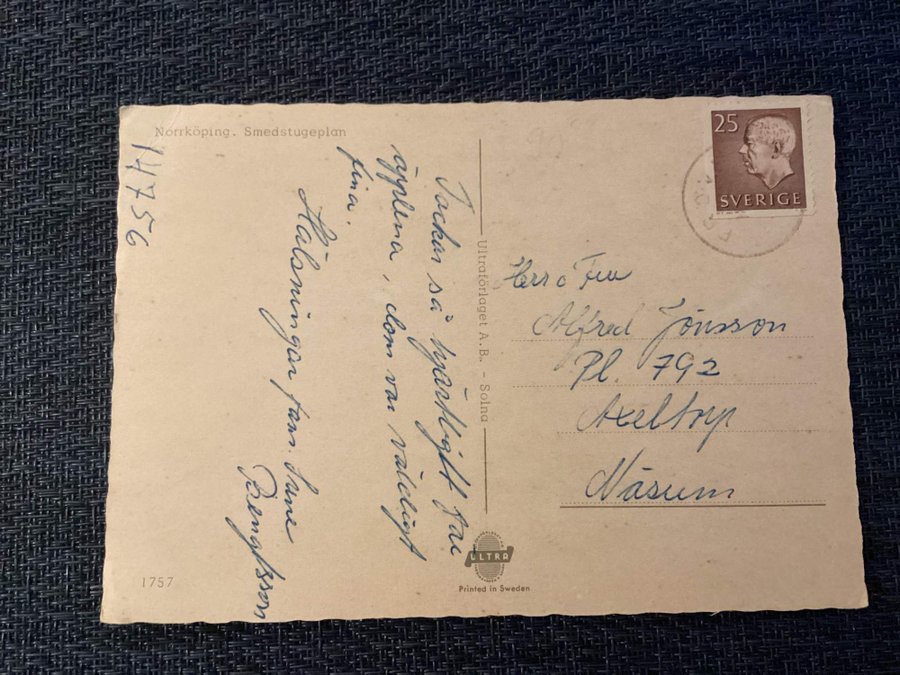 Norrköping. Smedstugeplan
14756
Tackar så hjärtligt för
äpplena, dom var väldigt
fina.
Hälsningar fam. Sune
Bengtsson
Ultraförlaget A.B. - Solna
25
SVERIGE
Herr o Fru
Alfred Jönsson
Pl. 792
Axeltorp
Näsum
ULTRA
Printed in Sweden
1757